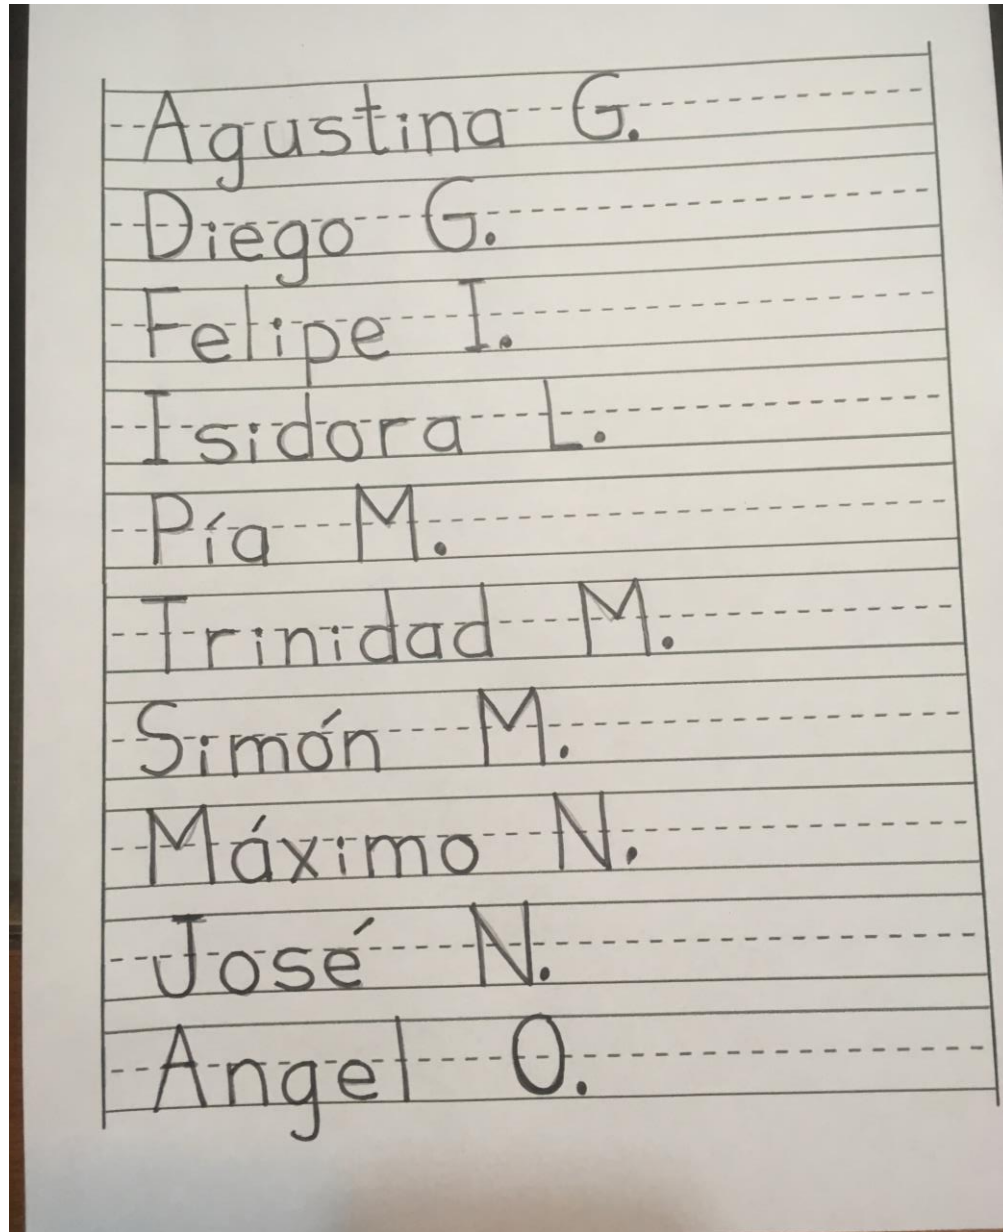 Agustina G.
Diego G.
Felipe I.
Isidora L.
Pía M.
Trinidad M.
Simón M.
Máximo N.
José N.
Angel O.